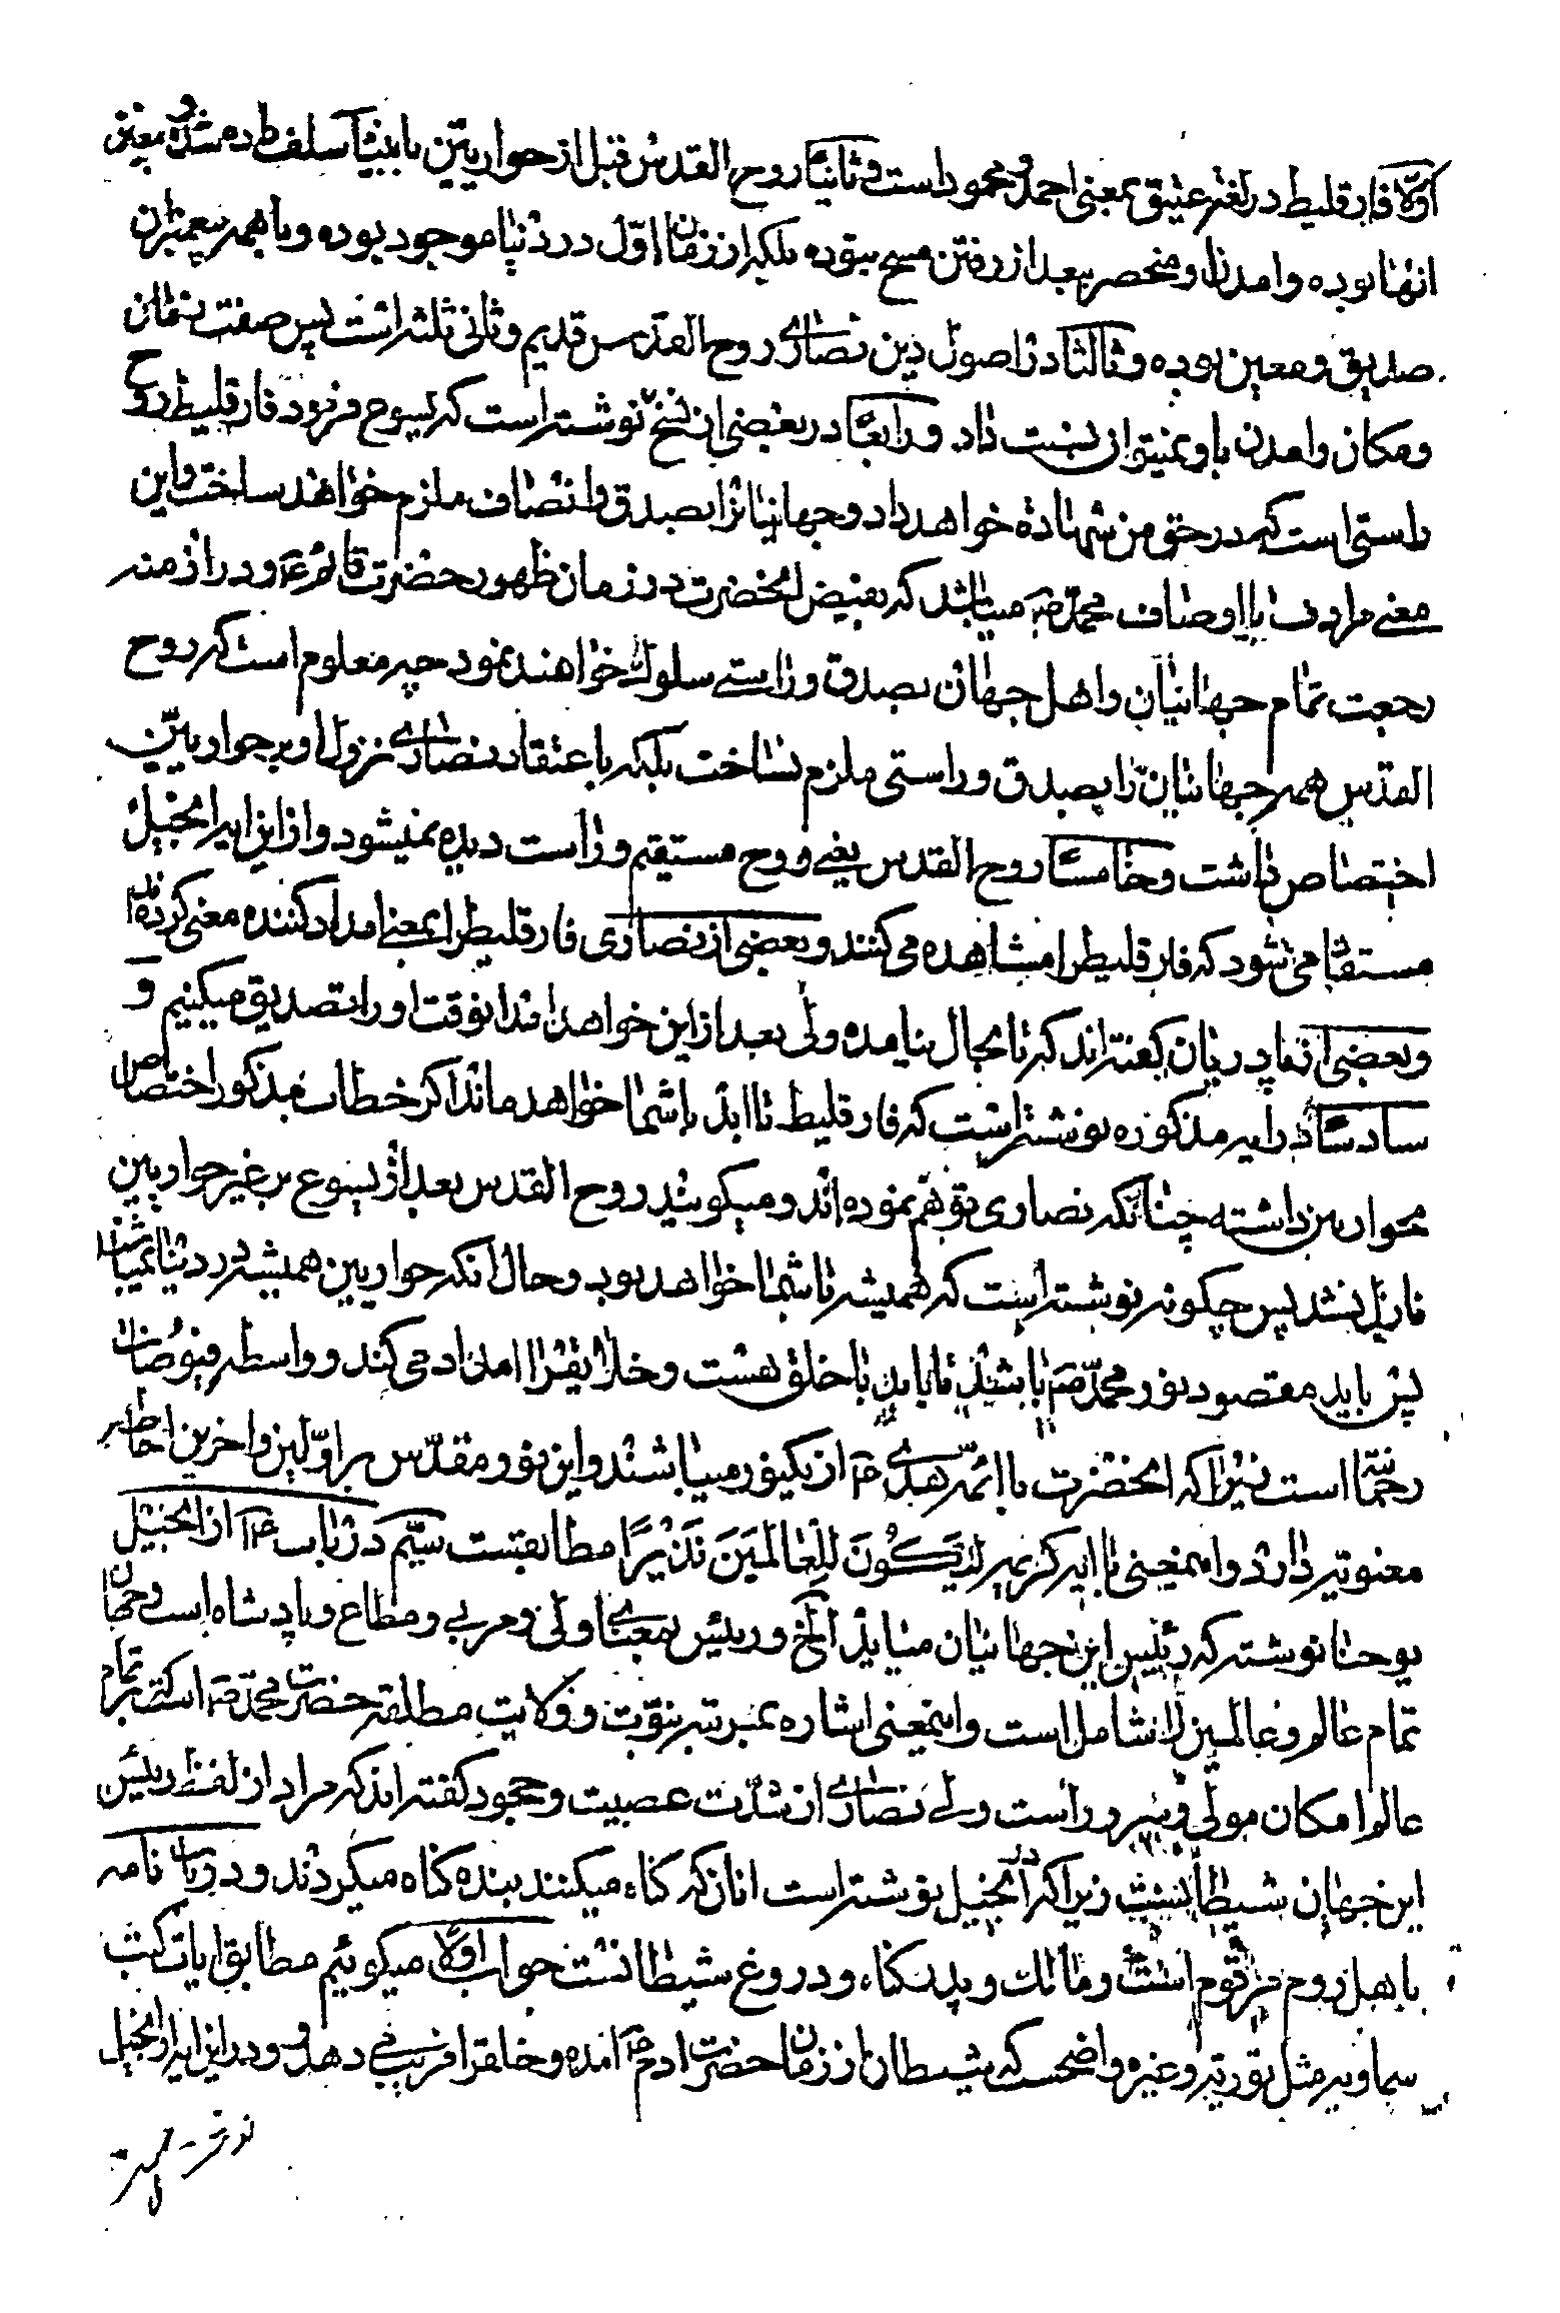 اولا فارقلیط در لغة عتیق بمعنی احمد و محمود است و ثانیا روح القدس قبل از حواریین با انبیا سلف طی ده شده و معین
انها بوده و امدن او منحصر ببعد از رفتن مسیح نبوده بلکه از زمان اول در دنیا موجود بوده و با همه پیغمبران
صدیق و معین بوده و ثالثا در اصول دین نصاری روح القدس قدیم و ثانی ثلثه است پس صفت زمان
و مکان و امدن باو نمیتوان نسبت داد و رابعا در بعضی از نسخ نوشته است که یسوع فرمود فارقلیط روح
راستی است که در حق من شهاده خواهد داد و جهانیانرا بصدق و انصاف ملزم خواهد ساخت و این
معنی مرادف با اوصاف محمد ص میباشد که بفیض انحضرت در زمان ظهور حضرت قائم ع و در ازمنه
رجعت تمام جهانیان و اهل جهان بصدق و راستی سلوک خواهند نمود چه معلوم است که روح
القدس همه جهانیان را بصدق و راستی ملزم نساخت بلکه باعتقاد نصاری نزول او بر حواریین
اختصاص داشت و خامسا روح القدس یعنی روح مستقیم و راست دیده نمیشود و از این ایه انجیل
مستفاد می شود که فارقلیط را مشاهده می کنند و بعضی از نصاری فارقلیط را بمعنی امداد کننده معنی کرده اند
و بعضی از پادریان گفته اند که تا بحال نیامده ولی بعد از این خواهد امد انوقت او را تصدیق میکنیم و
سادسا در ایه مذکوره نوشته است که فارقلیط تا ابد با شما خواهد ماند اگر خطاب مذکور اختصاص
بحواریین داشته چنانکه نصاری توهم نموده اند و میگویند روح القدس بعد از یسوع بر غیر حواریین
نازل نشد پس چگونه نوشته است که همیشه با شما خواهد بود و حال انکه حواریین همیشه در دنیا نمیباشند
پس باید مقصود نور محمد ص باشد تا باید با خلق هست و خلایقرا امداد می کند و واسطه فیوضات
رحمانیه است زیرا که انحضرت با ائمه هدی ع از یکنور میباشند و این نور مقدس بر اولین و اخرین احاطه
معنویه دارد و اینمعنی با ایه کریمه لِیَکُونَ لِلْعالَمینَ نَذیرًا مطابقست سیم در باب ۱۴ از انجیل
یوحنا نوشته که رئیس این جهانیان میاید الخ و رئیس بمعنای اولی و مربی و مطاع و پادشاه است و جهان
تمام عالم و عالمین را شامل است و اینمعنی اشاره بمرتبه نبوت و ولایت مطلقه حضرت محمد ص است که بر تمام
عالم امکان مولی و سرور است ولی نصاری از شدت عصبیت و جحود گفته اند که مراد از لفظ رئیس
این جهان شیطانست زیرا که در انجیل نوشته است انان که گناه میکنند بنده گناه میگردند و در باب نامه
باهل روم مرقوم است و مالک و پدر گناه و دروغ شیطانست جواب اولا میگوئیم مطابق ایات کتب
سماویه مثل توریه و غیره واضحست که شیطان از زمان حضرت ادم ع امده و خلقرا فریب می دهد و در این ایه از انجیل